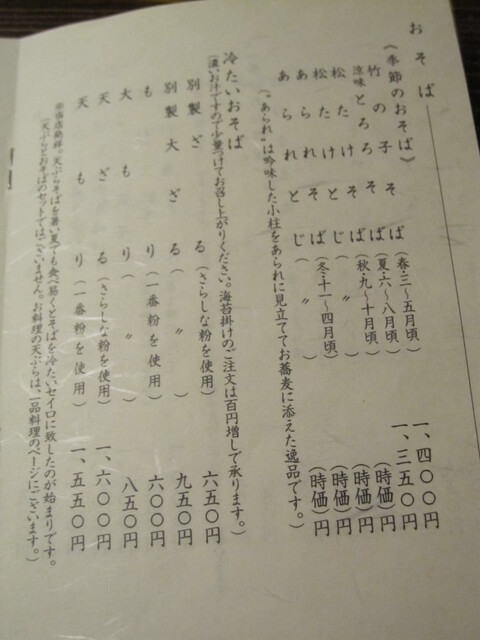 おそば
《季節のおそば》
竹の子そば(春三〜五月頃) 一、四〇〇円
涼味とろろそば(夏六〜八月頃) 一、三五〇円
松たけそば(秋九〜十月頃) (時価)円
松たけとじ( 〃 ) (時価)円
あられそば(冬十一〜四月頃) (時価)円
あられとじ( 〃 ) (時価)円
(〝あられ〟は吟味した小柱をあられに見立ててお蕎麦に添えた逸品です。)
冷たいおそば
(濃いお汁ですので少量つけてお召し上がりください。海苔掛けのご注文は百円増しで承ります。)
別製ざる(さらしな粉を使用) 六五〇円
別製大ざる( 〃 ) 九五〇円
もり(一番粉を使用) 六〇〇円
大もり( 〃 ) 八五〇円
天ざる(さらしな粉を使用) 一、六〇〇円
天もり(一番粉を使用) 一、五五〇円
※当店発祥。天ぷらそばを暑い夏でも食べ易くとそばを冷たいセイロに致したのが始まりです。
(天ぷらとおそばのセットではございません。お料理の天ぷらは、一品料理のページにございます。)